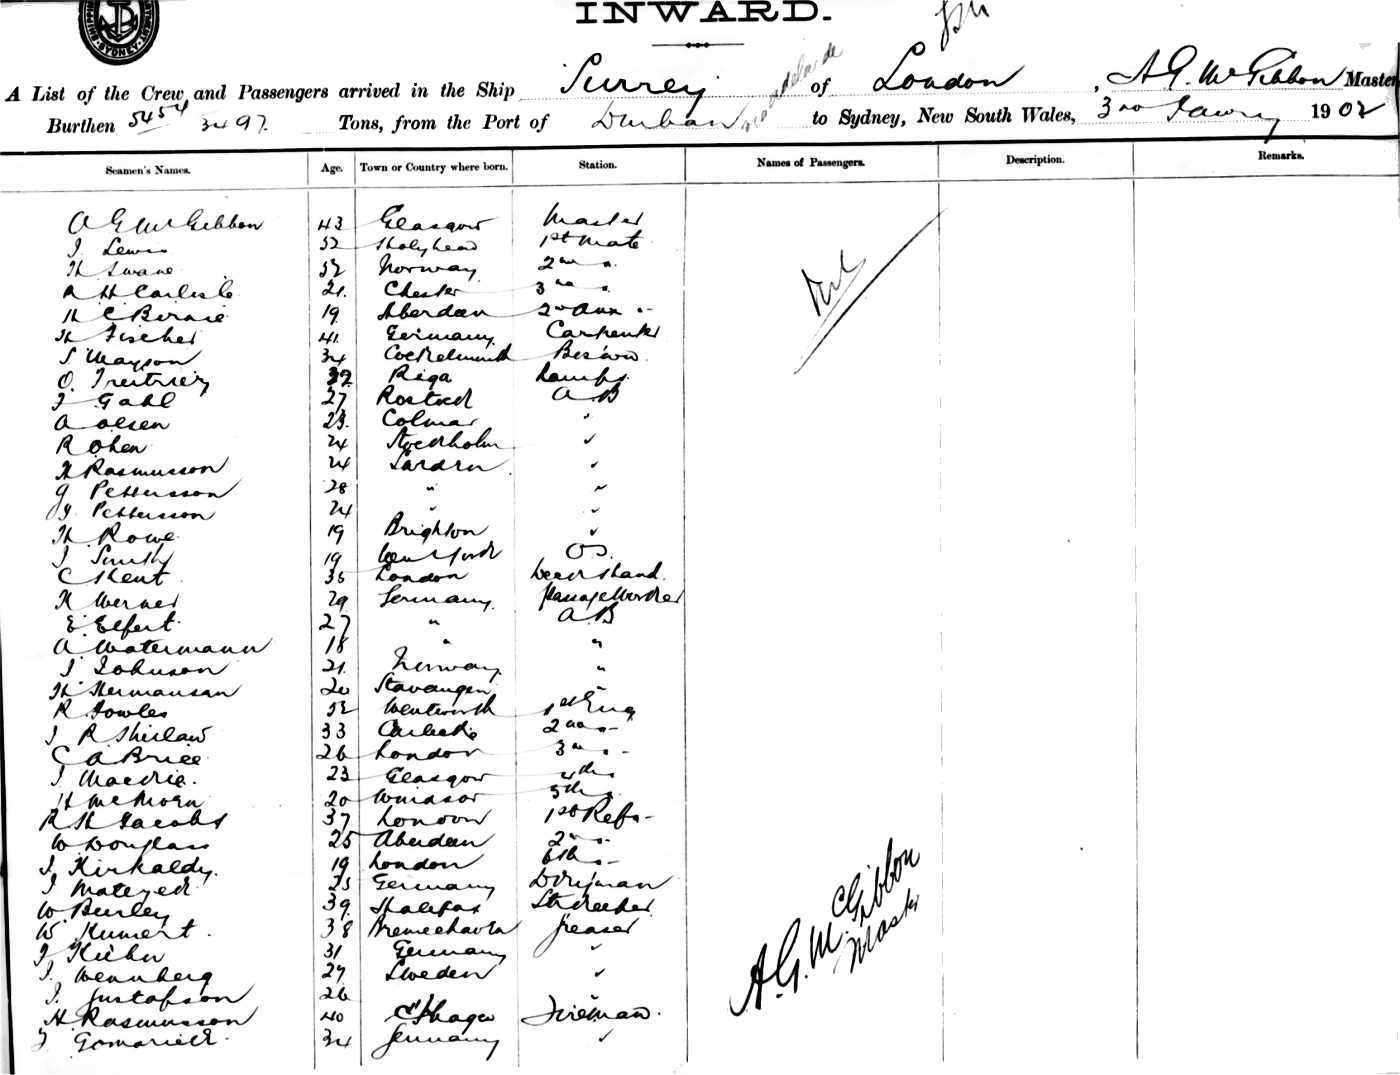 INWARD.
SYDNEY
A List of the Crew and Passengers arrived in the Ship Surrey of London, A G. McGibbon Master
Burthen 5454 3497. Tons, from the Port of Durban via Adelaide to Sydney, New South Wales, 3rd 1902
Seamen's Names. Age. Town or Country where born. Station. Names of Passengers. Description. Remarks.
A G McGibbon 43 Glasgow Master
J Lewis 52 Holyhead 1st Mate
Norway 2nd "
R H Carlisle 21 Chester 3rd "
19 Aberdeen
H Fischer 41 Germany Carpenter
S Mayson 34
O. Riga Lamps
J Gahl 27 Rostock A B
A Olsen 23 Colmar "
R Ohen 24 Stockholm "
H Rasmusson 24 "
G Pettersson 28 " "
J. Pettersson 24 " "
H Rowe 19 Brighton "
J Smith 19 OS.
C Kent 35 London
H Werner 29 Germany
E Elfert 27 " A B
A Watermann 18 " "
J Johnson 21 Norway "
H Hermansan 20 Stavanger "
R Fowles 52 Wentworth 1st Eng
J R Shirlaw 33 2nd "
C A Brice 26 London 3rd "
J 23 Glasgow 4th "
20 Windsor 5th "
R H Jacobs 37 London 1st Refr
W Douglass 25 Aberdeen 2nd "
J. Kirkaldy 19 London 6th "
J 25 Germany
W Burley 39 Halifax
W. Kunert 38 Bremerhaven Greaser
J Kuhn 31 Germany "
J. Wennberg 27 Sweden "
J. Gustafson 26 "
H. Rasmusson 40 Fireman
J 34 Germany "
Nil
A. G. McGibbon
Master